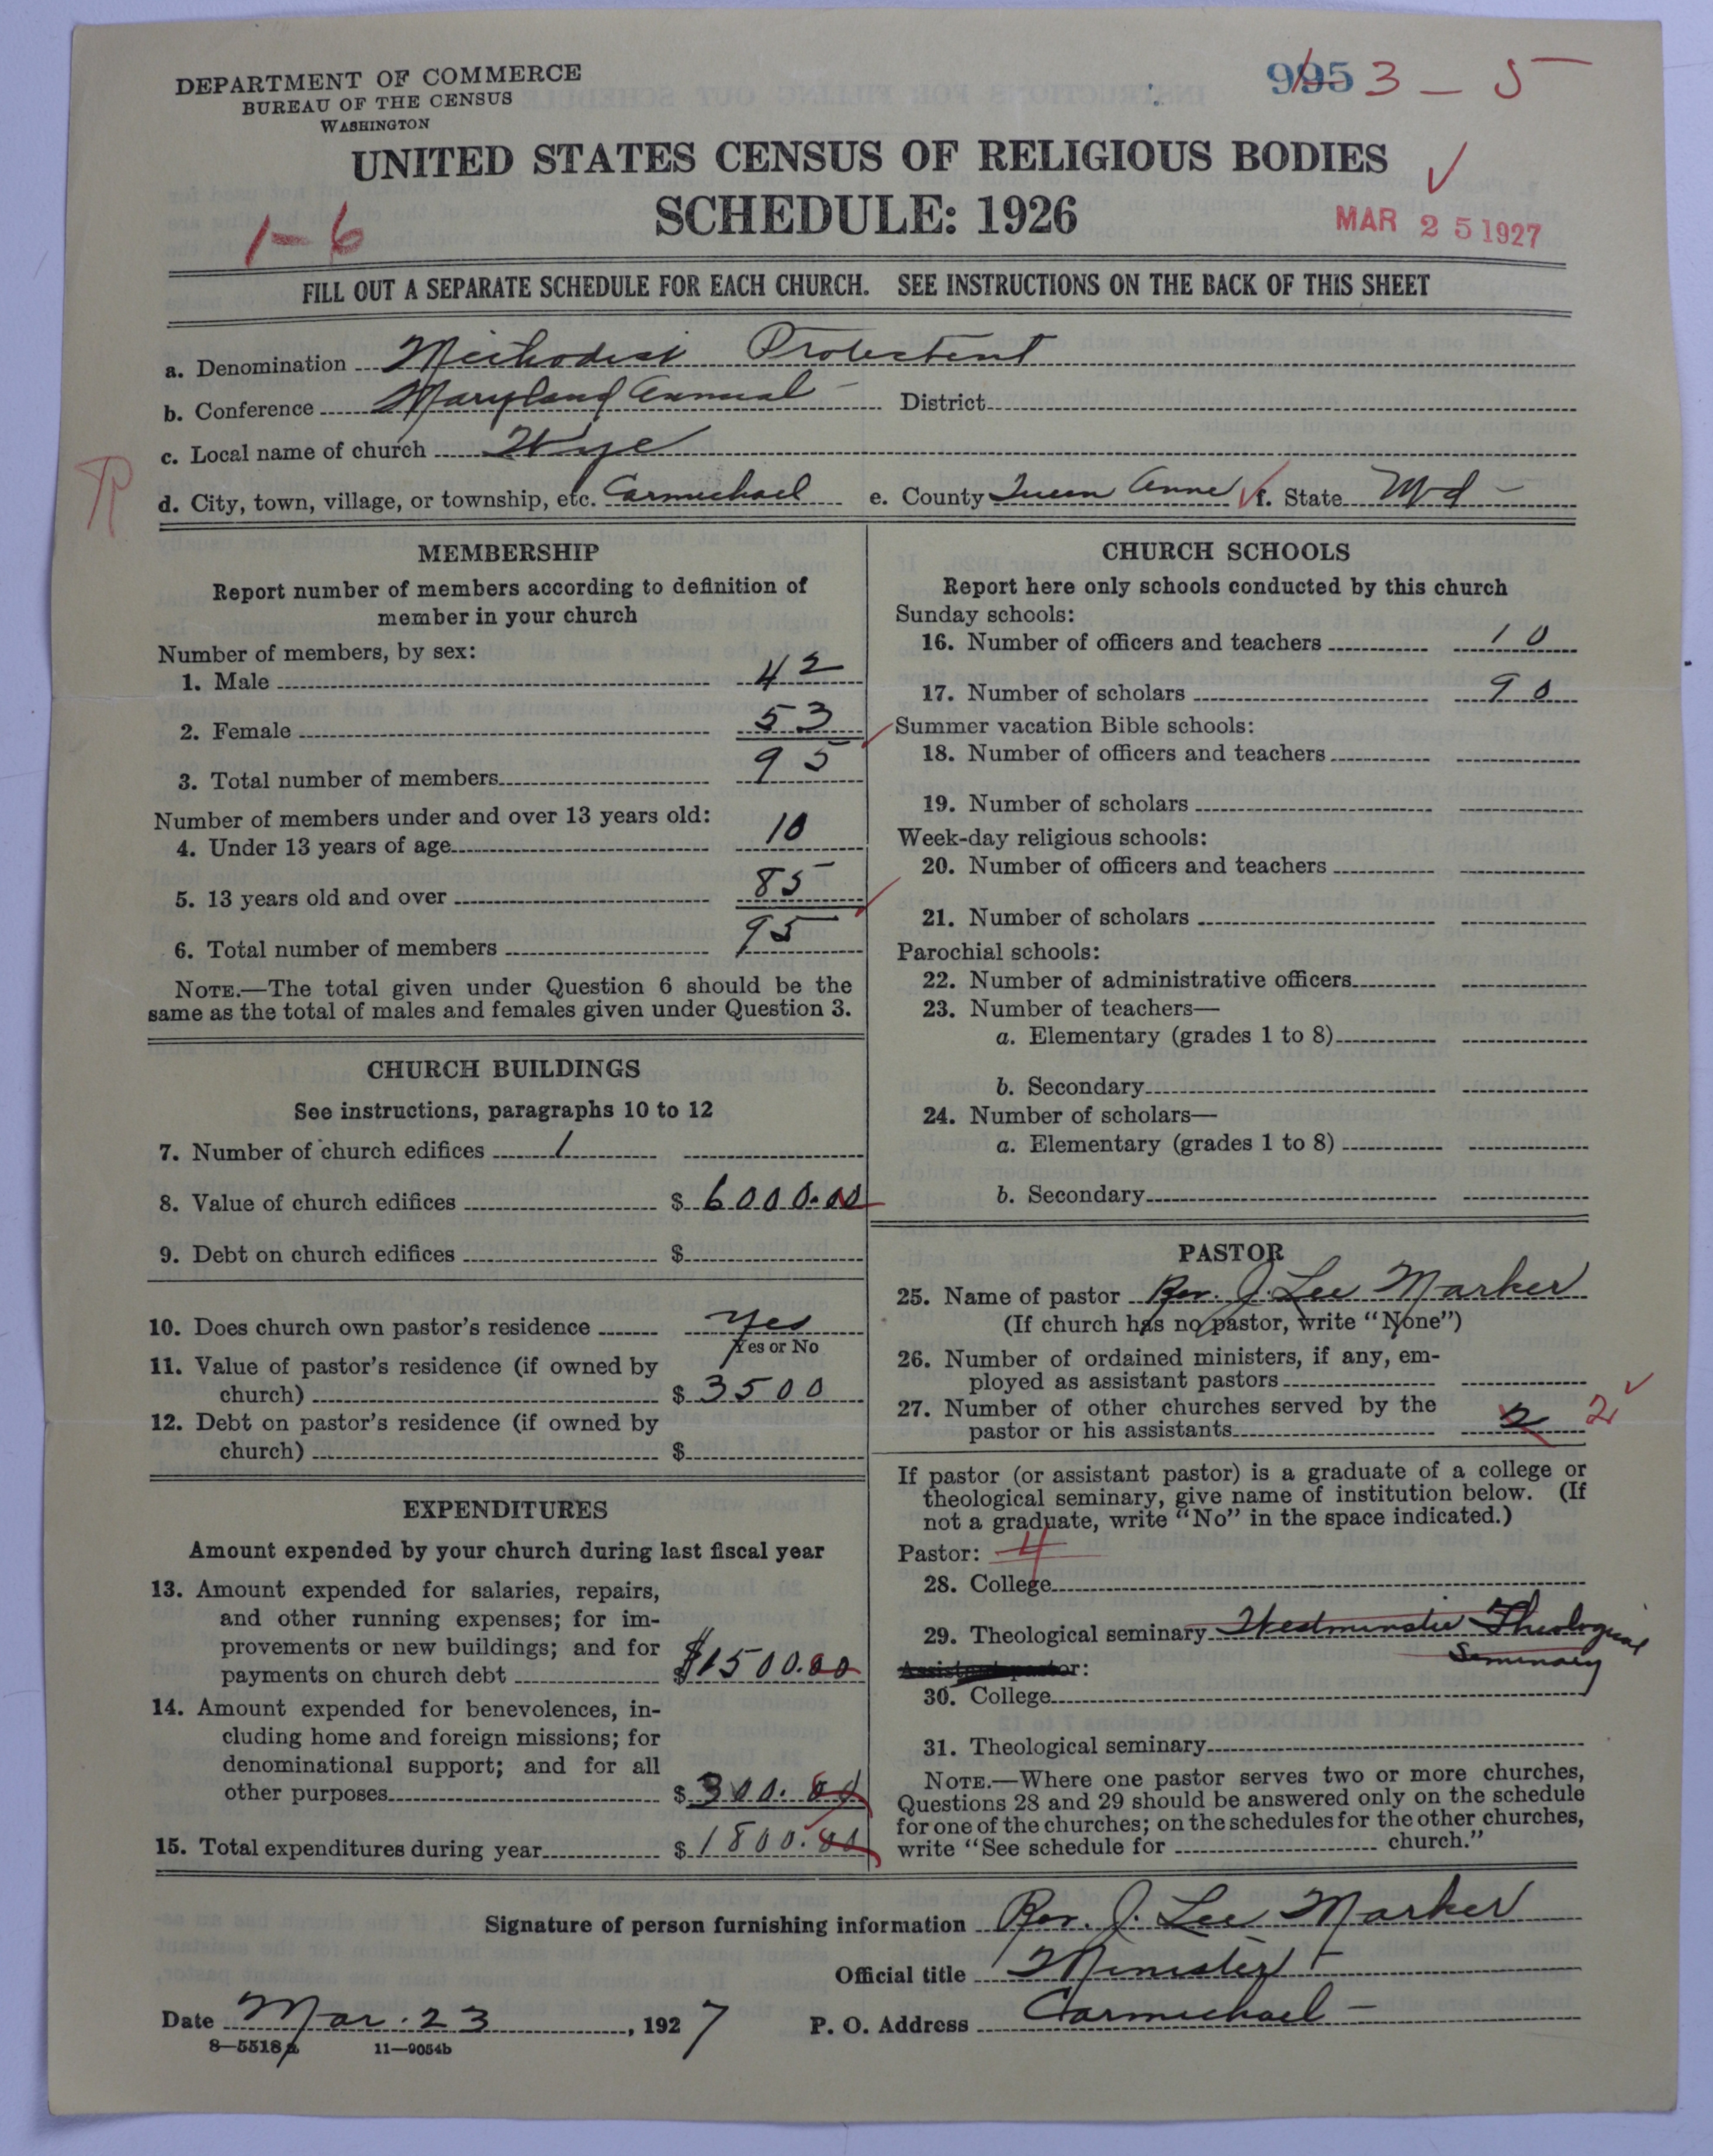 DEPARTMENT OF COMMERCE
BUREAU OF THE CENSUS
WASHINGTON
3 – 5
UNITED STATES CENSUS OF RELIGIOUS BODIES
SCHEDULE: 1926
1-6
MAR 25 1927
FILL OUT A SEPARATE SCHEDULE FOR EACH CHURCH. SEE INSTRUCTIONS ON THE BACK OF THIS SHEET
a. Denomination Methodist Protestant
b. Conference Maryland Annual – District
c. Local name of church Wye
d. City, town, village, or township, etc. Carmichael e. County Queen Anne f. State Md –
MEMBERSHIP
Report number of members according to definition of
member in your church
Number of members, by sex:
1. Male 42
2. Female 53
3. Total number of members 95
Number of members under and over 13 years old:
4. Under 13 years of age 10
5. 13 years old and over 85
6. Total number of members 95
NOTE.—The total given under Question 6 should be the
same as the total of males and females given under Question 3.
CHURCH BUILDINGS
See instructions, paragraphs 10 to 12
7. Number of church edifices 1
8. Value of church edifices $ 6000.00
9. Debt on church edifices $
10. Does church own pastor's residence yes
Yes or No
11. Value of pastor's residence (if owned by
church) $ 3500
12. Debt on pastor's residence (if owned by
church) $
EXPENDITURES
Amount expended by your church during last fiscal year
13. Amount expended for salaries, repairs,
and other running expenses; for im-
provements or new buildings; and for
payments on church debt $1500.00
14. Amount expended for benevolences, in-
cluding home and foreign missions; for
denominational support; and for all
other purposes $ 300.00
15. Total expenditures during year $ 1800.00
CHURCH SCHOOLS
Report here only schools conducted by this church
Sunday schools:
16. Number of officers and teachers 10
17. Number of scholars 90
Summer vacation Bible schools:
18. Number of officers and teachers
19. Number of scholars
Week-day religious schools:
20. Number of officers and teachers
21. Number of scholars
Parochial schools:
22. Number of administrative officers
23. Number of teachers—
a. Elementary (grades 1 to 8)
b. Secondary
24. Number of scholars—
a. Elementary (grades 1 to 8)
b. Secondary
PASTOR
25. Name of pastor Rev. J. Lee Marker
(If church has no pastor, write "None")
26. Number of ordained ministers, if any, em-
ployed as assistant pastors
27. Number of other churches served by the
pastor or his assistants 2 2
If pastor (or assistant pastor) is a graduate of a college or
theological seminary, give name of institution below. (If
not a graduate, write "No" in the space indicated.)
Pastor: 4
28. College
29. Theological seminary Westminster Theological
Seminary
Assistant pastor:
30. College
31. Theological seminary
NOTE.—Where one pastor serves two or more churches,
Questions 28 and 29 should be answered only on the schedule
for one of the churches; on the schedules for the other churches,
write "See schedule for church."
Signature of person furnishing information Rev. J. Lee Marker
Official title Minister
Date Mar. 23, 1927 P. O. Address Carmichael –
8—5518a 11—9054b